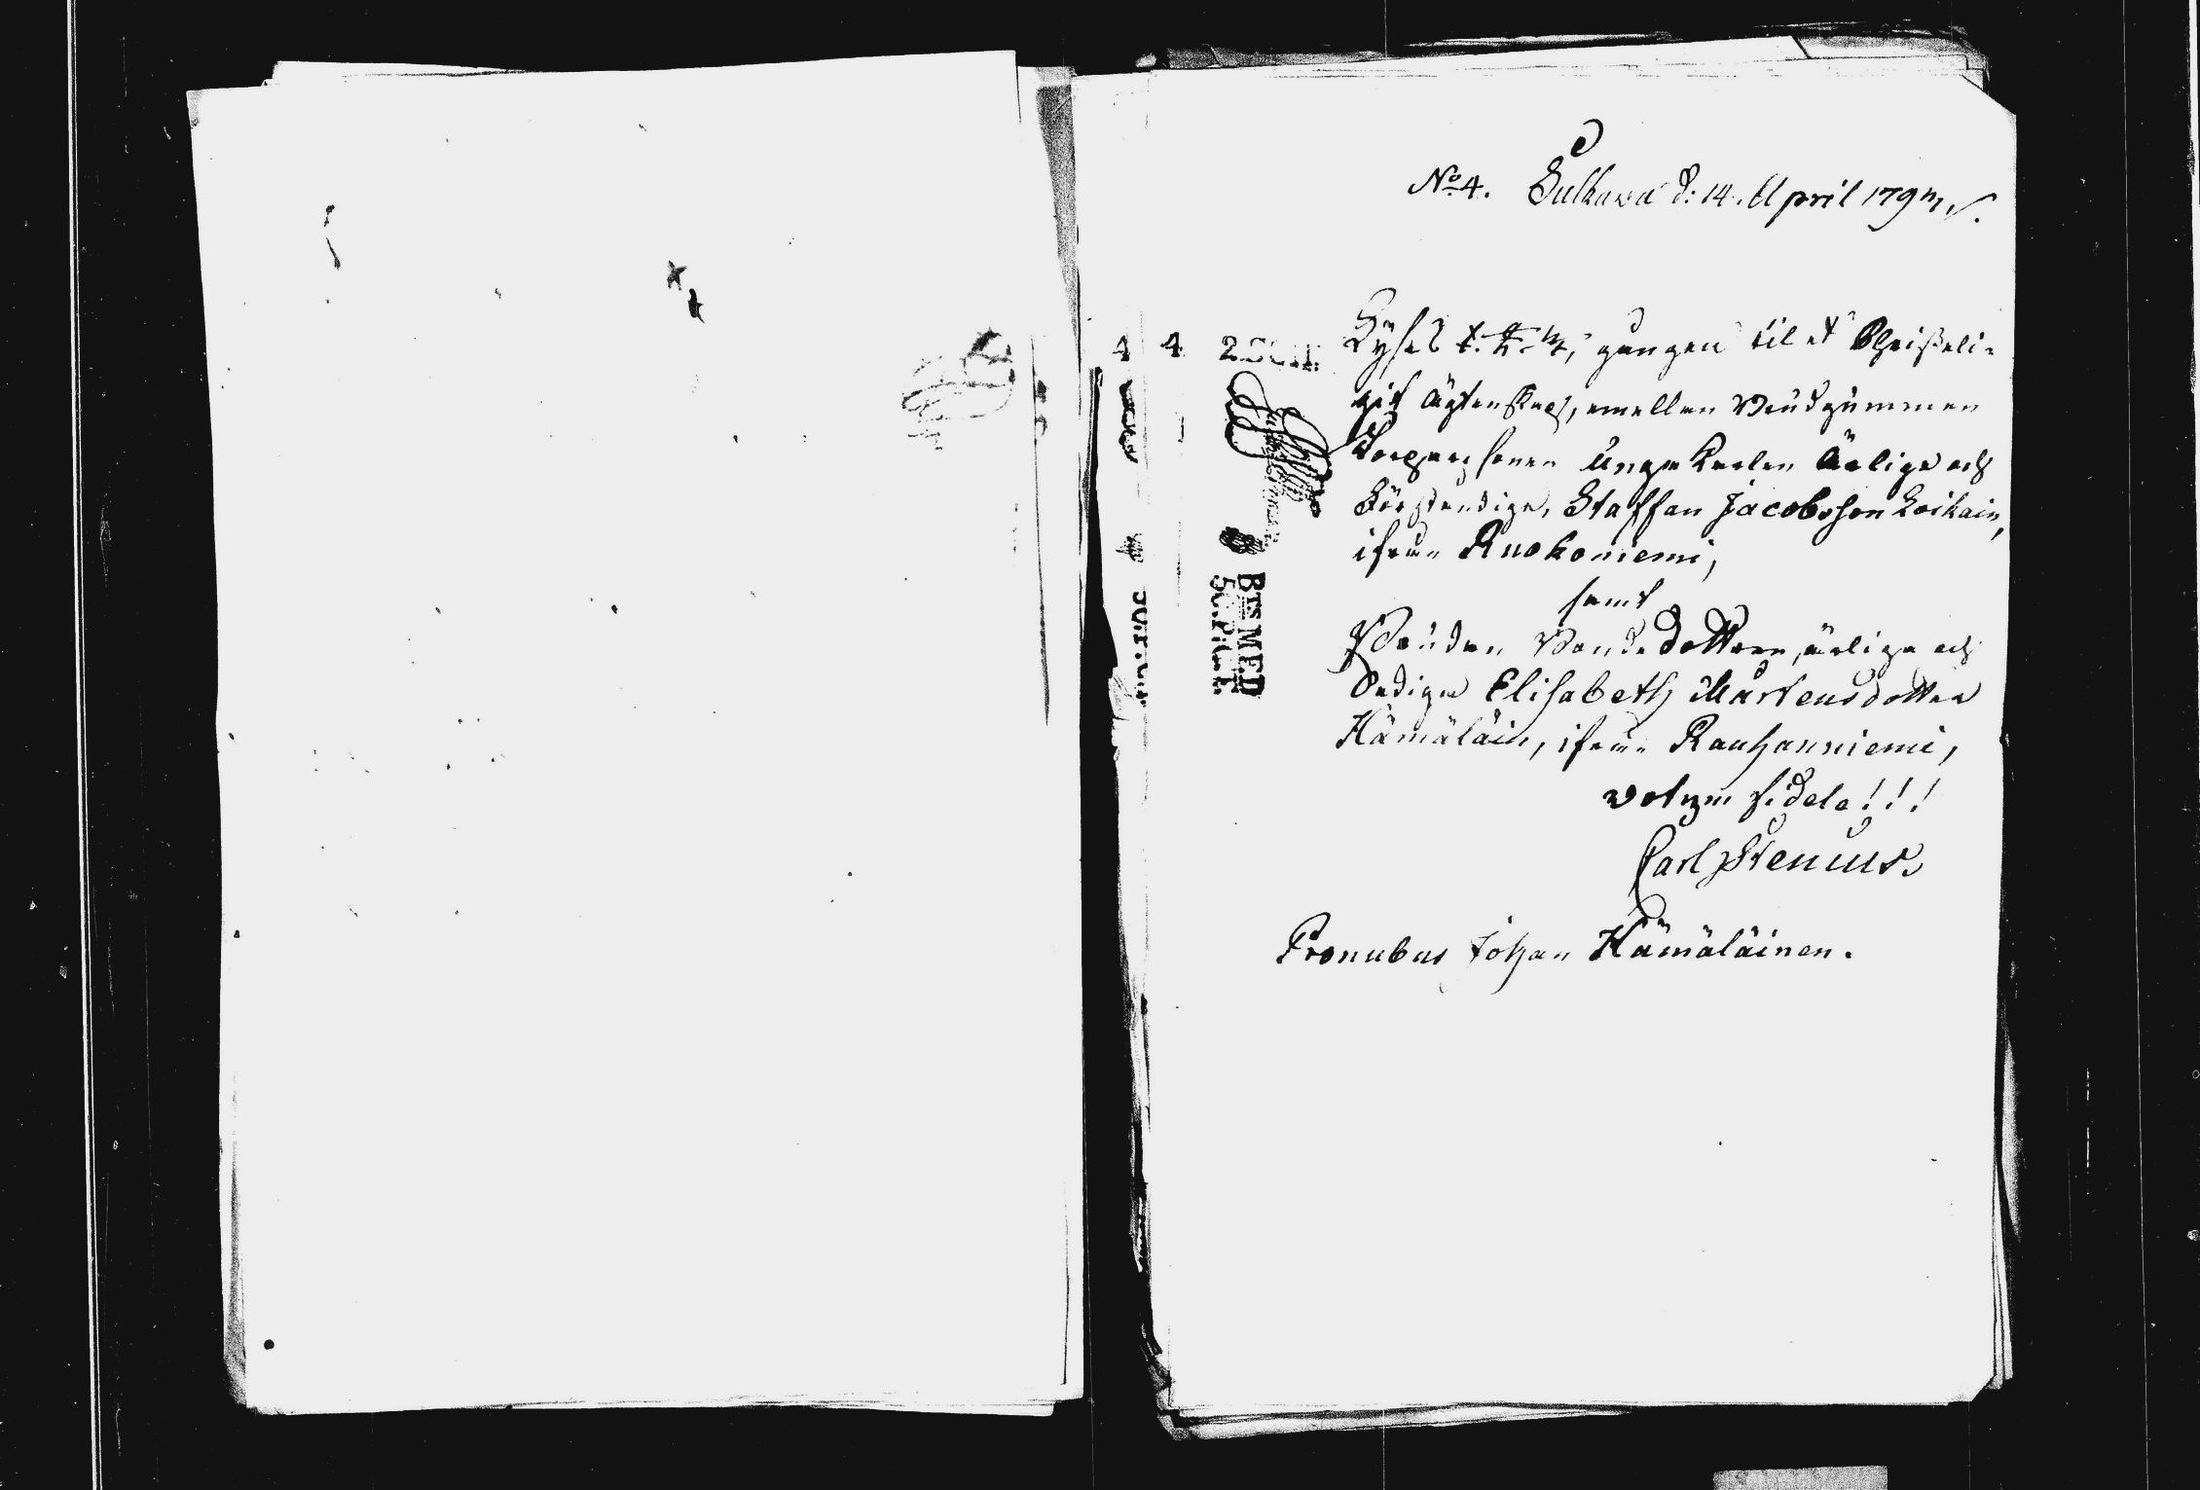 No 4. Sulkava d: 14. April 1797.
Lyses t. k. m, gången til et Christeli-
git Ägtenskap, emellan Brudgummen
Torparesonen Unga Karlen Ärlige och
Förståndige, Staffan Jacobsson Loikain,
ifrån Ruokoniemi,
samt
Bruden Bondedottren, ärliga och
Dydiga Elisabeth Mårtensdotter
Hämäläin, ifrån Rauhanniemi,
votum fidele!!!
Carl Stenius.
Pronubus Johan Hämäläinen.
4 4 2
BTS MED